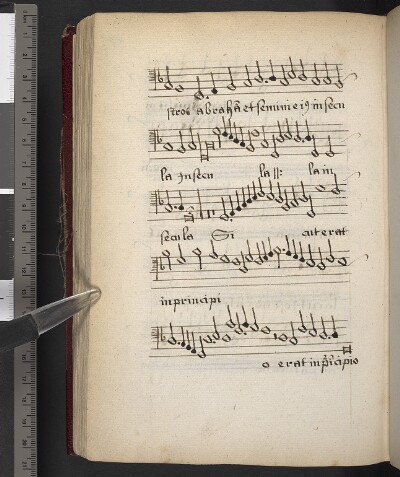 stros abrahā et semini eiꝰ in secu
la in secu la ij: la in
secula Si cut erat
in principi
o erat in prīcipio